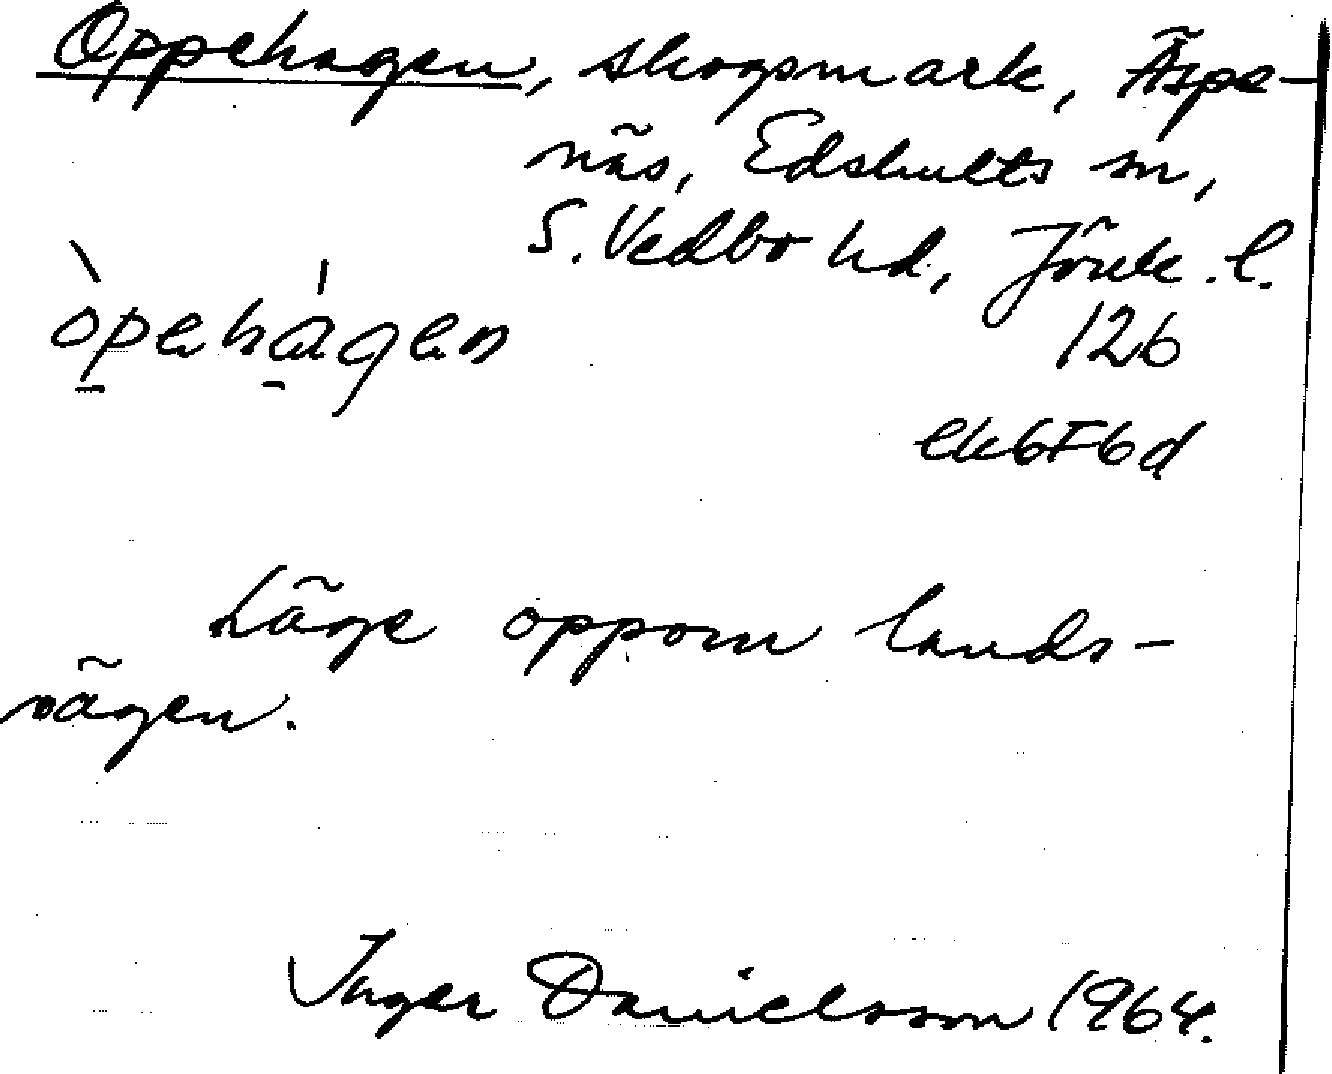 Oppehagen, skogsmark, Äspe-
näs, Edshults sn,
S. Vedbo hd, Jönk. l.
òpehágen
126
ek6F6d
Läge oppom lands-
vägen.
Inger Danielsson 1964.